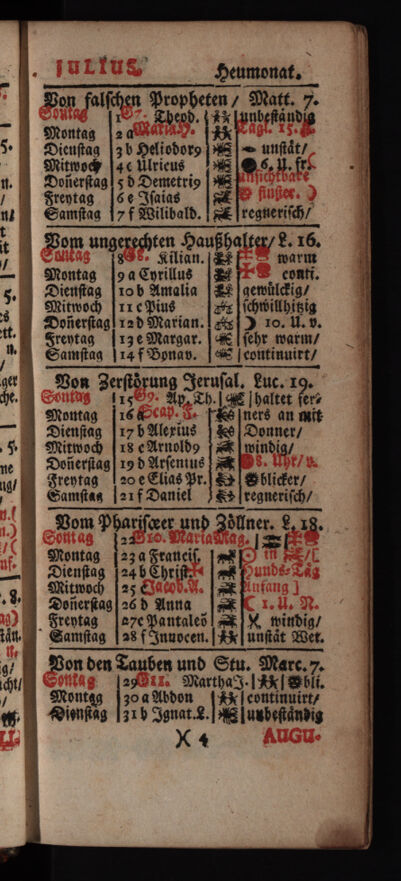 JULIUS. Heumonat.
Von falschen Propheten / Matt. 7.
Sontag 1 G7. Theod. unbeständig
Montag 2 a Maria H. Tägl. 15.
Dienstag 3 b Heliodor9 unstät/
Mitwoch 4 c Ulricus 6. U. fr.
Donerstag 5 d Demetri9 unsichtbare
Freytag 6 e Isaias finster. )
Samstag 7 f Wilibald. regnerisch/
Vom ungerechten Haußhalter / L. 16.
Sontag 8 G8. Kilian. warm
Montag 9 a Cyrillus conti.
Dienstag 10 b Amalia gewülckig/
Mitwoch 11 c Pius schwillhitzig
Donerstag 12 d Marian. ) 10. U. v.
Freytag 13 e Margar. sehr warm/
Samstag 14 f Bonav. continuirt/
Von Zerstörung Jerusal. Luc. 19.
Sontag 15 G9. Ap. Th. haltet fer-
Montag 16 a Scap. F. ners an mit
Dienstag 17 b Alexius Donner/
Mitwoch 18 c Arnold9 windig/
Donerstag 19 d Arsenius 8. Uhr/ v.
Freytag 20 e Elias Pr. blicker/
Samstag 21 f Daniel regnerisch/
Vom Phariseer und Zöllner. L. 18.
Sontag 22 G10. Maria Mag.
Montag 23 a Francis. in
Dienstag 24 b Christ. Hunds-Täg
Mitwoch 25 c Jacob. A. Anfang ]
Donerstag 26 d Anna 1. U. N.
Freytag 27 e Pantaleō windig/
Samstag 28 f Innocen. unstät Wet.
Von den Tauben und Stu. Marc. 7.
Sontag 29 G11. Martha J. bli.
Montag 30 a Abdon continuirt/
Dienstag 31 b Ignat. L. unbeständig
X 4 AUGU.